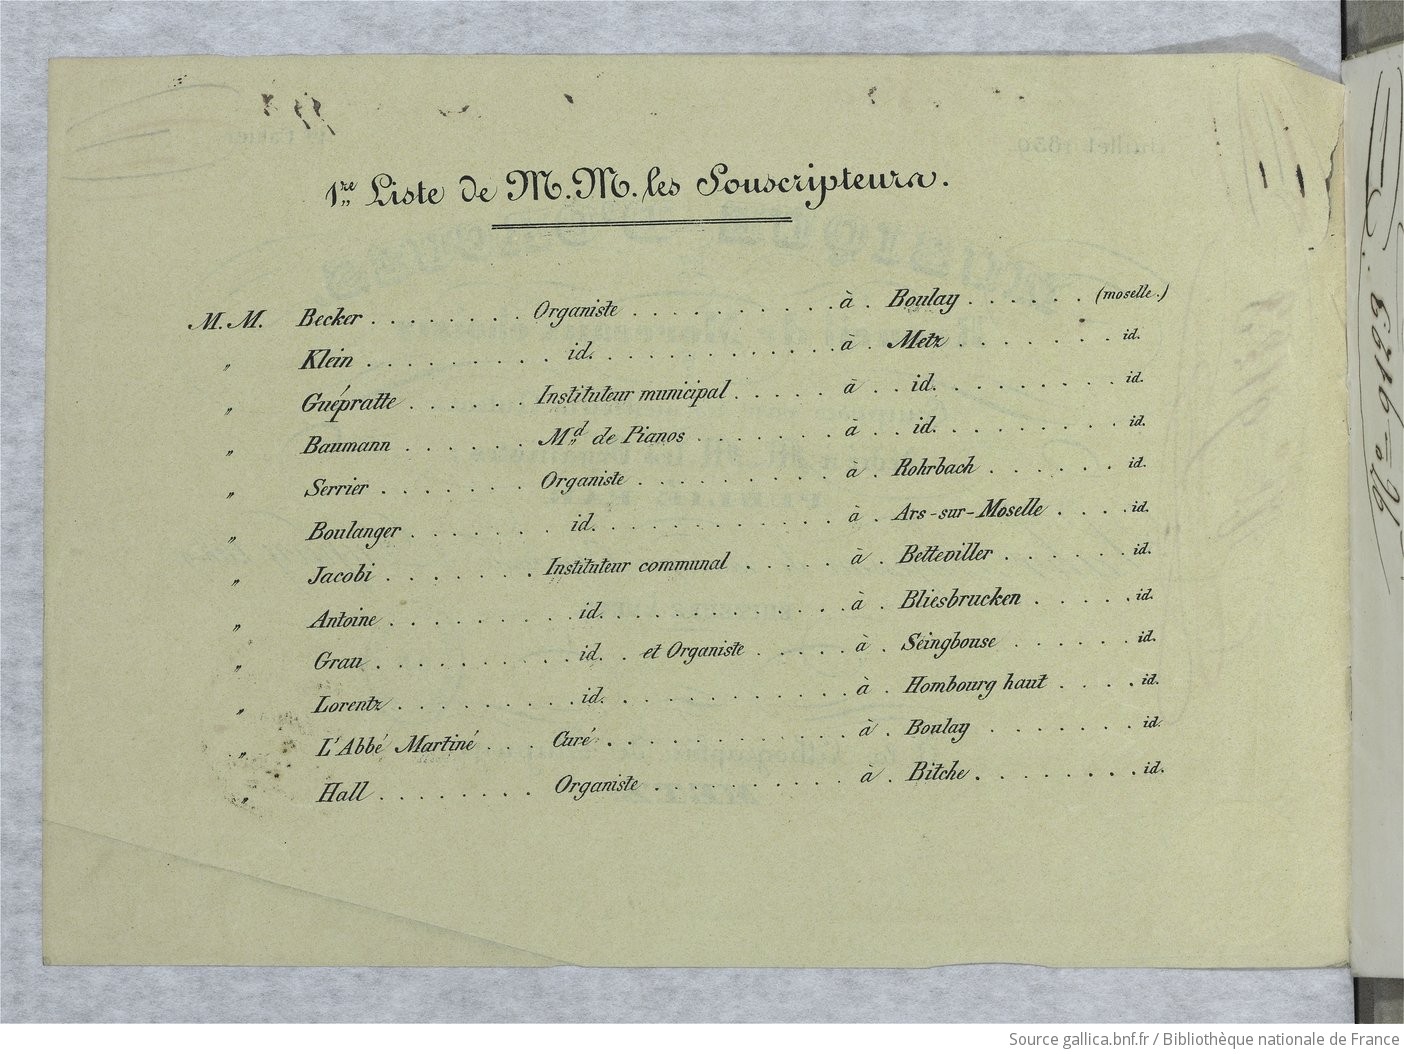 1re Liste de M.M. les Souscripteurs.
M.M. Becker . . . . . . . . Organiste . . . . . . . . . . à . Boulay . . . . . . (moselle.)
" Klein . . . . . . . . . id. . . . . . . . . . . . à . Metz . . . . . . . . id.
" Guépratte . . . . . . Instituteur municipal . . . . . à . . id. . . . . . . . . id.
" Baumann . . . . . . Md de Pianos . . . . . . . à . . id. . . . . . . . . id.
" Serrier . . . . . . . Organiste . . . . . . . . . . à . Rohrbach . . . . . . id.
" Boulanger . . . . . . . id. . . . . . . . . . . . à . Ars-sur-Moselle . . . . id.
" Jacobi . . . . . . . Instituteur communal . . . . . à . Betteviller . . . . . . id.
" Antoine . . . . . . . . . id. . . . . . . . . . . à . Bliesbrucken . . . . . id.
" Grau . . . . . . . . . . id. . et Organiste . . . . . à . Seingbouse . . . . . . id.
" Lorentz . . . . . . . . . id. . . . . . . . . . . à . Hombourg haut . . . . id.
" L'Abbé Martiné . . . Curé . . . . . . . . . . . à . Boulay . . . . . . . id.
" Hall . . . . . . . . Organiste . . . . . . . . . à . Bitche . . . . . . . . id.
Source gallica.bnf.fr / Bibliothèque nationale de France